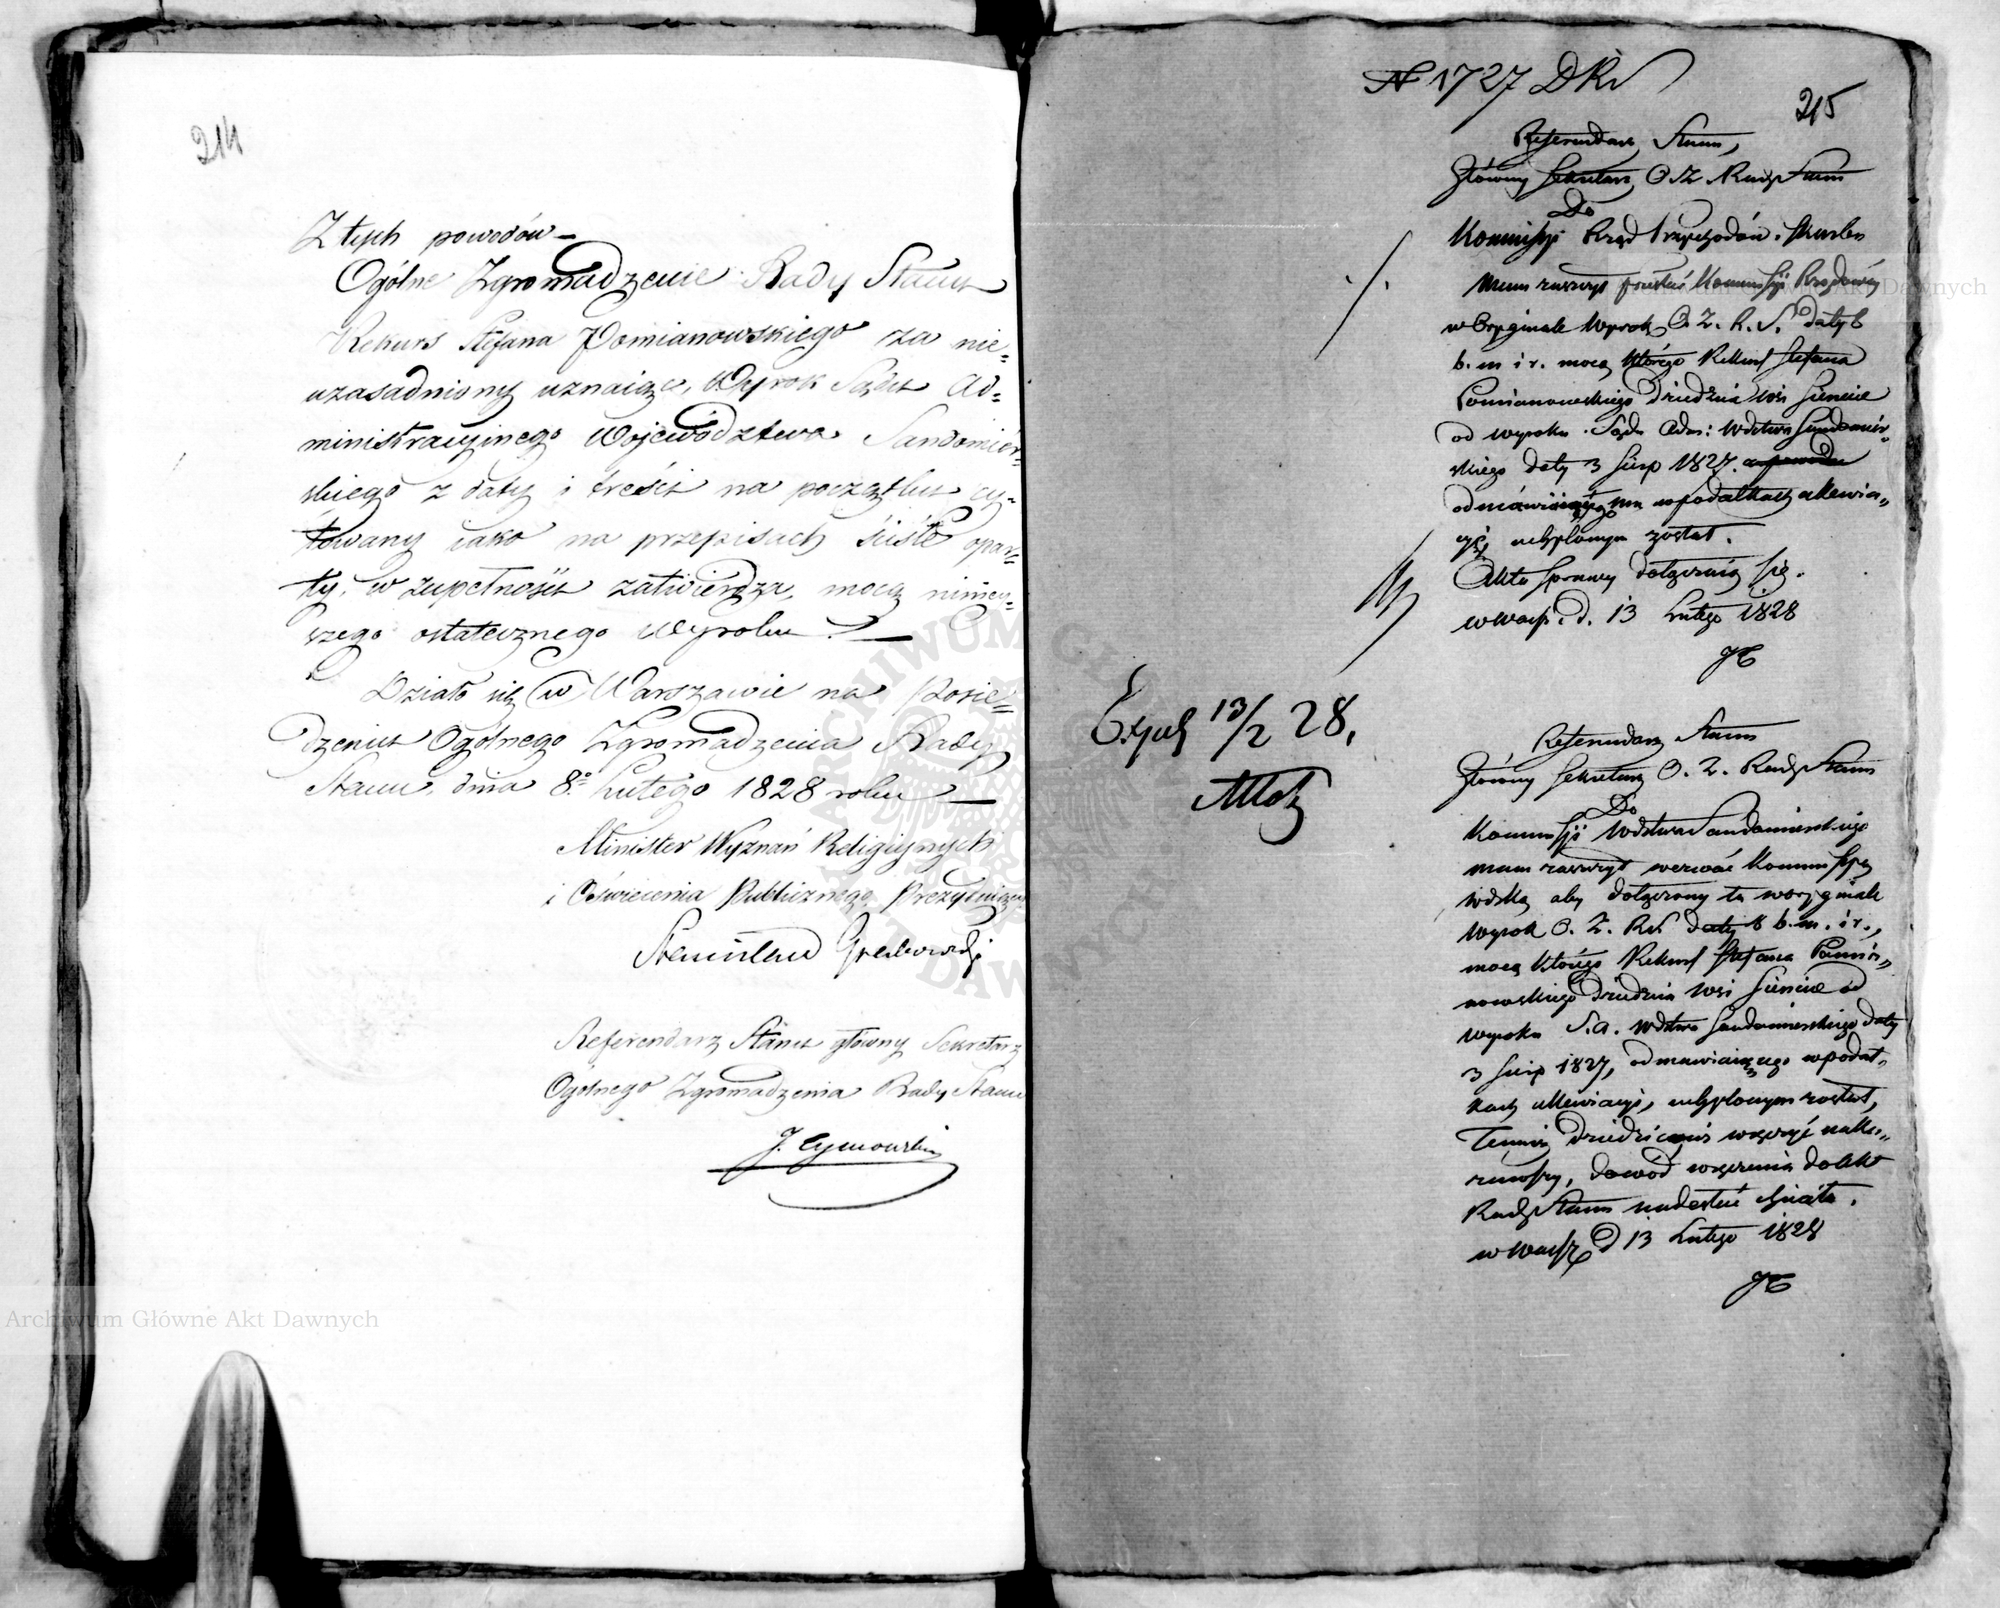 214
Z tych powodów –
Ogólne Zgromadzenie Rady Stanu
Rekurs Stefana Pomianowskiego za nie=
uzasadniony uznaiąc, Wyrok Sądu Ad=
ministracyinego Województwa Sandomier=
skiego z daty i treści na początku cy=
towany iako na przepisach ściśle opar=
ty, w zupełności zatwierdza, mocą niniey=
szego ostatecznego Wyroku. –
Działo się w Warszawie na Posie=
dzeniu Ogólnego Zgromadzenia Rady
Stanu, dnia 8º Lutego 1828 roku –
Minister Wyznań Religiynych
i Oświecenia Publicznego, Prezyduiący
Stanisław Grabowski
Referendarz Stanu główny Sekretarz
Ogólnego Zgromadzenia Rady Stanu
J. Tymowski
N 1727 DKS
215
Referendarz Stanu,
Główny Sekretarz O Z Rady Stanu
Do
Kommissyi Rząd Przychodów i Skarbu
Mam zaszczyt przesłać Kommissyi Rządowey
w Oryginale Wyrok O. Z. R. S. daty 8
b. m i r. mocą którego Rekurs Stefana
Pomianowskiego Dziedzica wsi Siencie
od wyroku Sądu Adm: Wdztwa Sandomir„
skiego daty 3 Sierp 1827.
odmawiaiącego mu w podatkach allewia„
cyi, uchylonym został.
Akta sprawy dołączaią się.
w Warsz. d. 13 Lutego 1828
JT
Exped 13/2 28,
Referendarz Stanu
Główny Sekretarz O. Z. Rady Stanu
Do
Kommissyi Wdztwa Sandomierskiego
mam zaszczyt wezwać Kommissyą
Wdzką aby dołączony tu w oryginale
Wyrok O. Z. RS. daty 8 b. m. i r.,
mocą którego Rekurs Stefana Pomia„
nowskiego Dziedzica wsi Siencie od
wyroku S. A. Wdztwa Sandomierskiego daty
3 Sierp 1827, odmawiaiącego w podat„
kach allewiacyi, uchylonym został,
Temuż Dziedzicowi wręczyć naka„
zawszy, dowód wręczenia do Akt
Rady Stanu nadesłać chciała.
w Warsz d 13 Lutego 1828
JT
Archiwum Główne Akt Dawnych